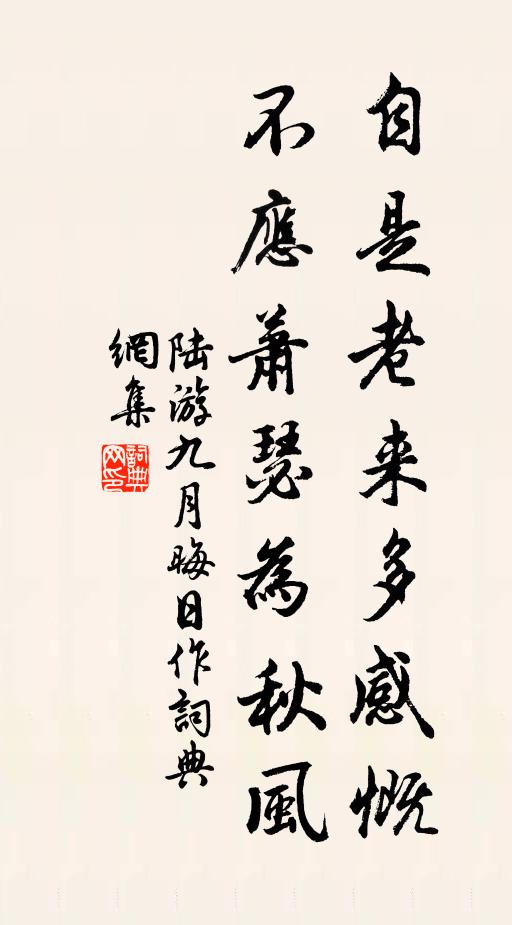 自是老来多感慨
不應蕭瑟為秋風
陆游九月晦日作詞典
網集
詞典网印